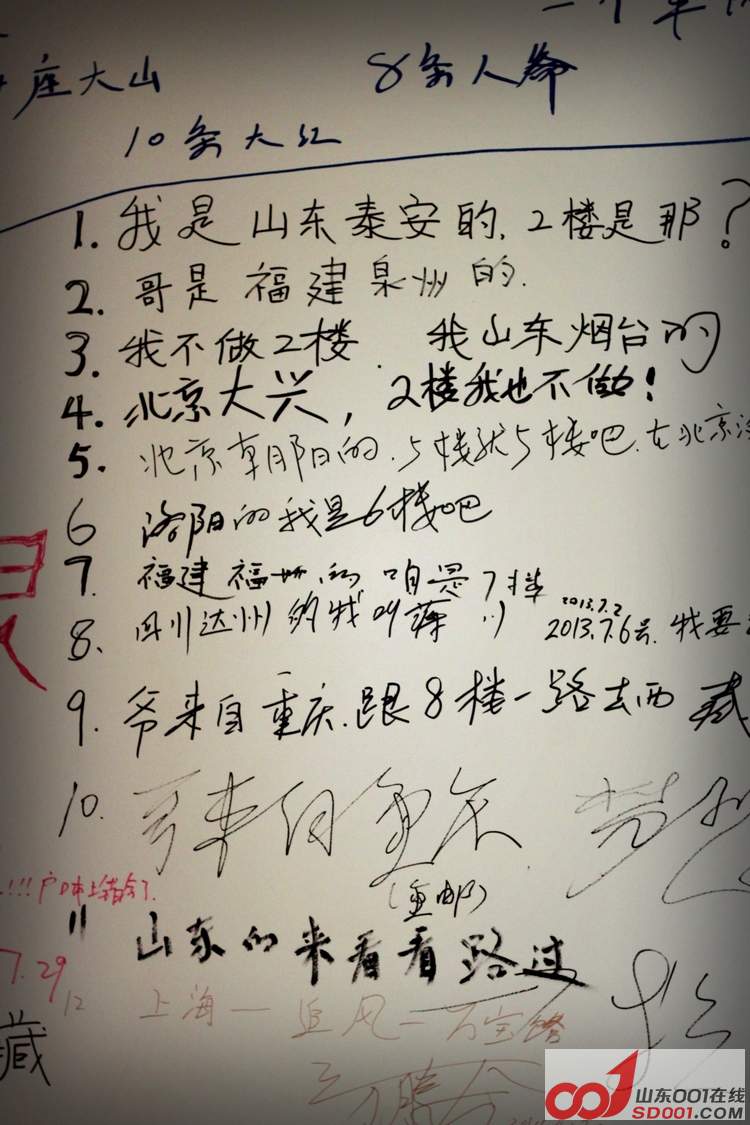 一个
座大山 8条人命
10条大江
1. 我是山东泰安的, 2楼是那?
2. 哥是福建泉州的.
3. 我不做2楼. 我山东烟台的
4. 北京大兴, 2楼我也不做!
5. 北京朝阳的, 5楼就5楼吧. 在北京
6 洛阳的我是6楼吧
7. 福建福州的 咱是7楼
2013.7.2
8. 四川达州的我叫 2013.7.6号. 我要
9. 爷来自重庆. 跟8楼一路去西藏
10. 哥来自重庆
!!! 户口本上
(重邮)
11 山东的来看看路过
7.29
12 上海一追风一万宝路
藏
山东001在线
SD001.com